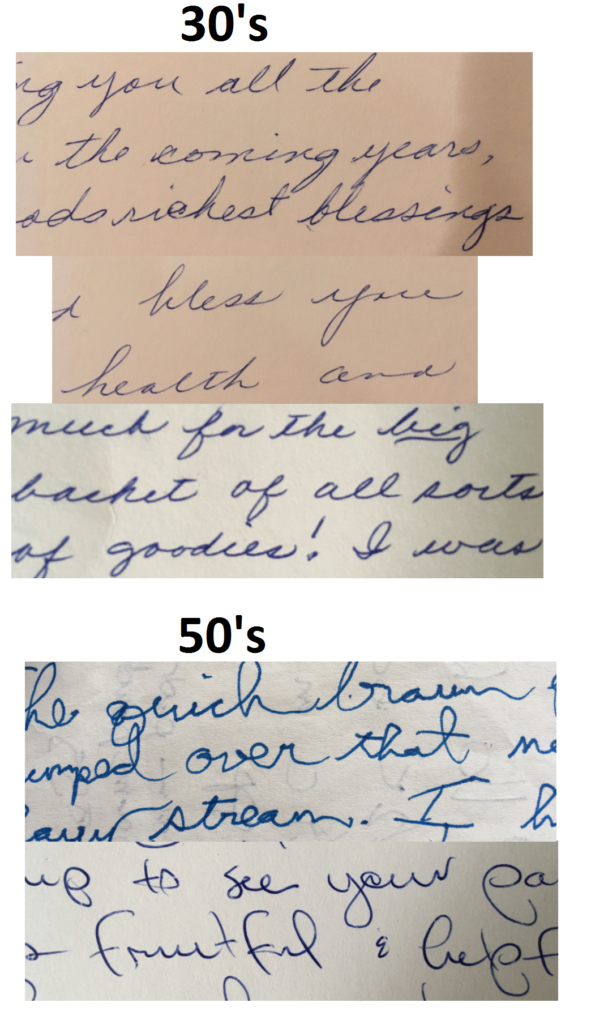 30's
ng you all the
the coming years,
ods richest blessings
bless you
health and
much for the big
basket of all sorts
of goodies! I was
50's
he quick brown
umped over that ne
stream. I h
up to see your pa
fruitful & helpf